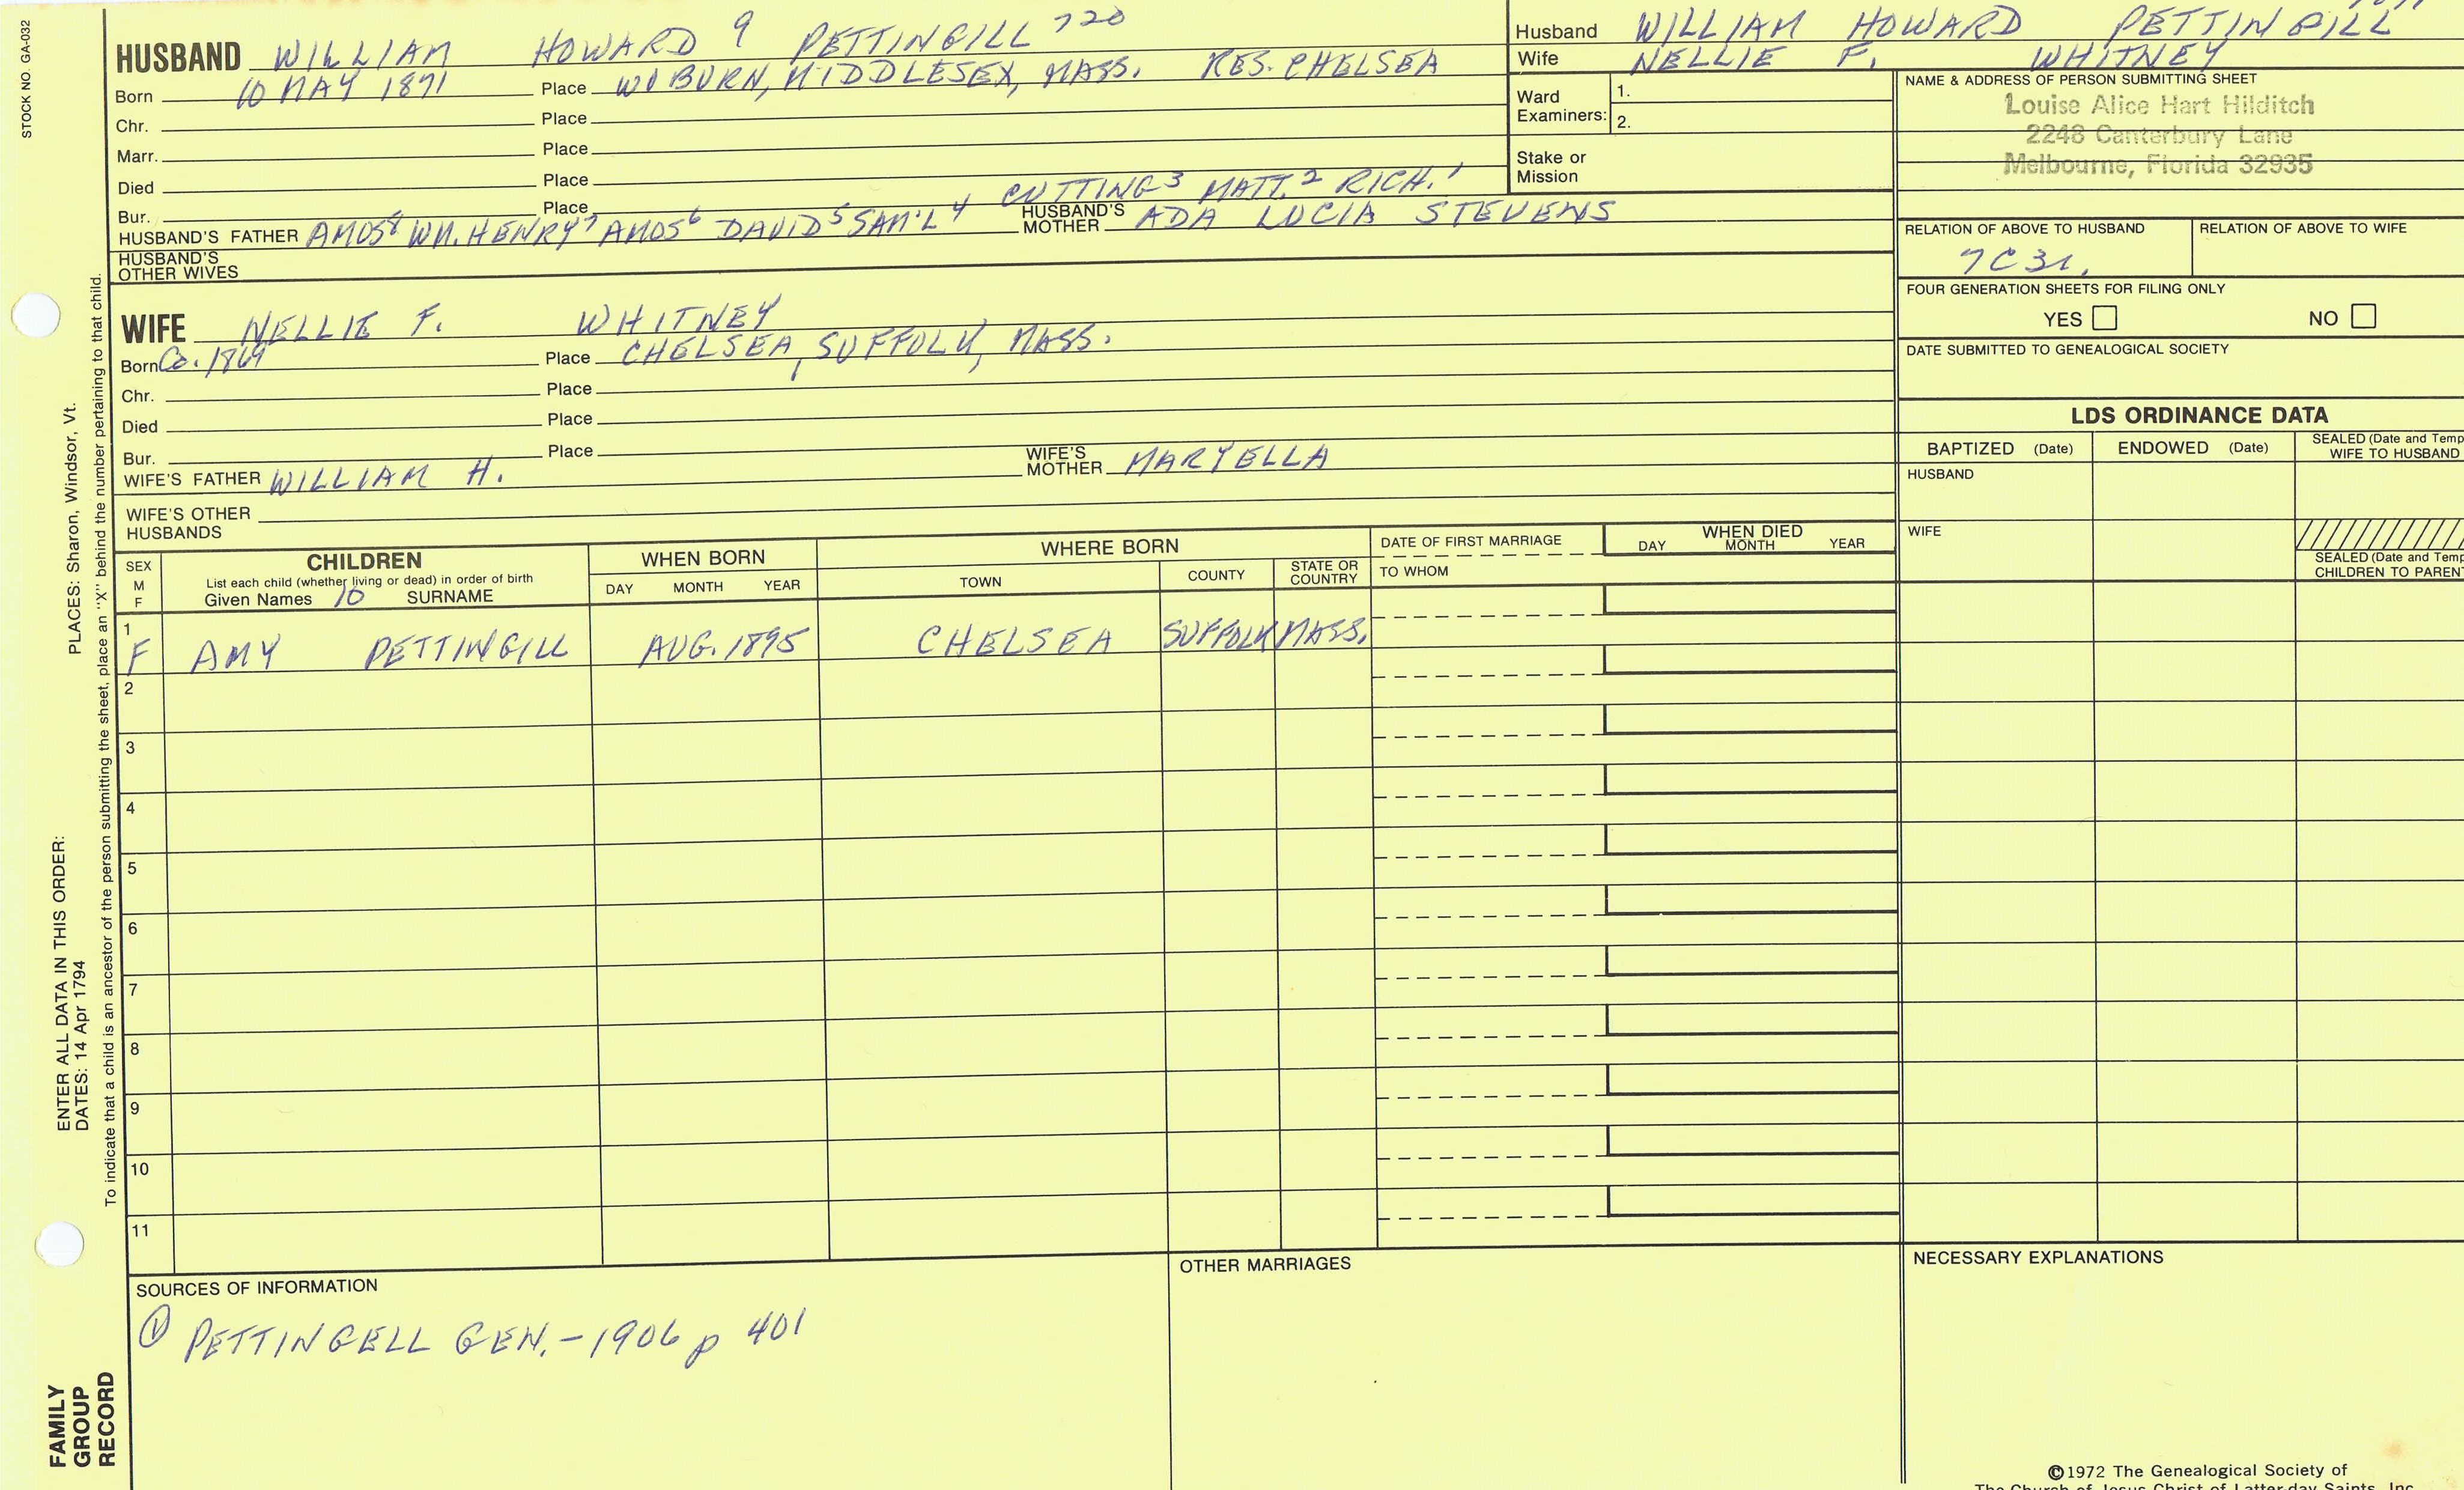 STOCK NO. GA-032
HUSBAND WILLIAM HOWARD 9 PETTINGILL 720
Born 10 MAY 1871 Place WOBURN, MIDDLESEX, MASS. RES. CHELSEA
Chr. Place
Marr. Place
Died Place
CUTTING3 MATT.2 RICH.1
Bur. Place
HUSBAND'S FATHER AMOS8 WM. HENRY7 AMOS6 DAVID5 SAM'L4 HUSBAND'S MOTHER ADA LUCIA STEVENS
HUSBAND'S OTHER WIVES
WIFE NELLIE F. WHITNEY
Born Ca. 1869 Place CHELSEA, SUFFOLK, MASS.
Chr. Place
Died Place
Bur. Place
WIFE'S FATHER WILLIAM H. WIFE'S MOTHER MARYELLA
WIFE'S OTHER HUSBANDS
Husband WILLIAM HOWARD PETTINGILL
Wife NELLIE F. WHITNEY
Ward Examiners: 1.
2.
Stake or Mission
NAME & ADDRESS OF PERSON SUBMITTING SHEET
Louise Alice Hart Hilditch
2248 Canterbury Lane
Melbourne, Florida 32935
RELATION OF ABOVE TO HUSBAND RELATION OF ABOVE TO WIFE
7C3r.
FOUR GENERATION SHEETS FOR FILING ONLY
YES NO
DATE SUBMITTED TO GENEALOGICAL SOCIETY
LDS ORDINANCE DATA
BAPTIZED (Date) ENDOWED (Date) SEALED (Date and Temp
WIFE TO HUSBAND
HUSBAND
WIFE
SEALED (Date and Temp
CHILDREN TO PAREN
SEX M F
CHILDREN
List each child (whether living or dead) in order of birth
Given Names 10 SURNAME
WHEN BORN
DAY MONTH YEAR
WHERE BORN
TOWN COUNTY STATE OR COUNTRY
DATE OF FIRST MARRIAGE
TO WHOM
WHEN DIED
DAY MONTH YEAR
1 F AMY PETTINGILL AUG. 1895 CHELSEA SUFFOLK MASS.
2
3
4
5
6
7
8
9
10
11
SOURCES OF INFORMATION
① PETTINGELL GEN. - 1906 p 401
OTHER MARRIAGES
NECESSARY EXPLANATIONS
©1972 The Genealogical Society of
The Church of Jesus Christ of Latter-day Saints, Inc.
PLACES: Sharon, Windsor, Vt.
ENTER ALL DATA IN THIS ORDER:
DATES: 14 Apr 1794
To indicate that a child is an ancestor of the person submitting the sheet, place an "X" behind the number pertaining to that child.
FAMILY
GROUP
RECORD